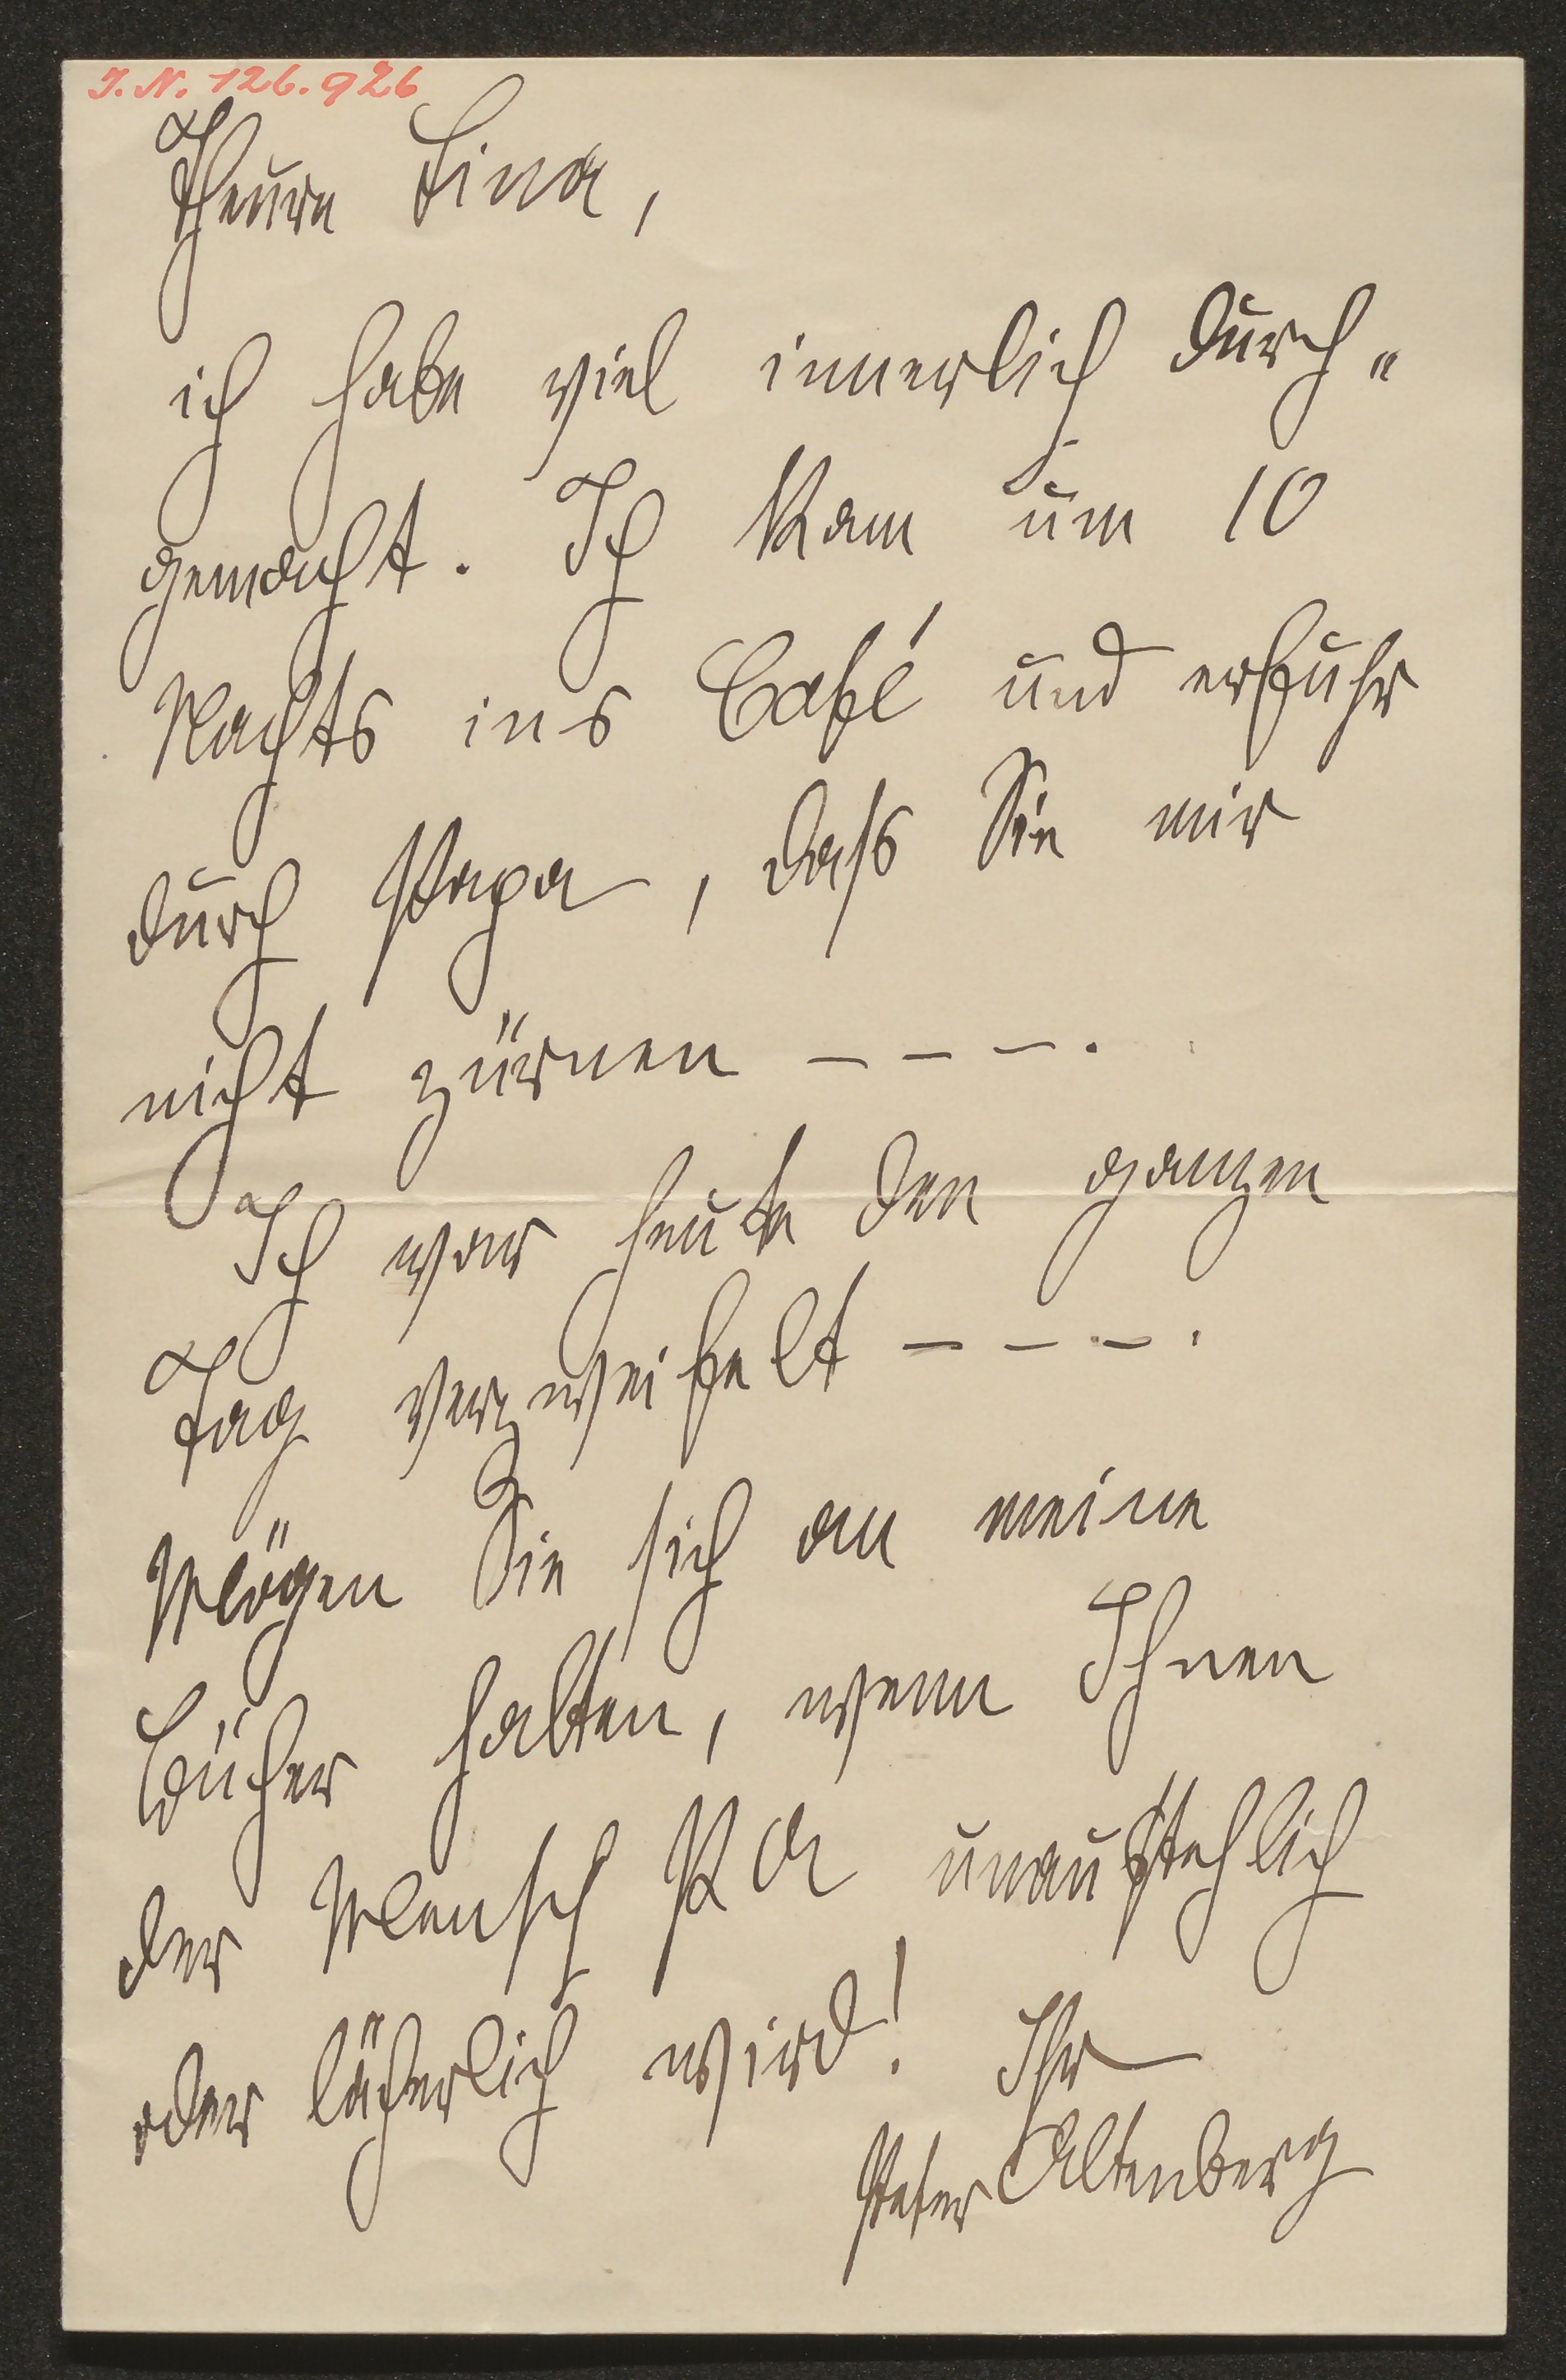 J. N. 126.926
Theure Lina,
ich habe viel innerlich durch„
gemacht. Ich kam um 10
Nachts ins Café und erfuhr
durch Papa, dass Sie mir
nicht zürnen – – – .
Ich war heute den ganzen
Tag verzweifelt – – – .
Mögen Sie sich an meine
Bücher halten, wenn Ihnen
der Mensch P A unausstehlich
oder lächerlich wird! Ihr
Peter Altenberg